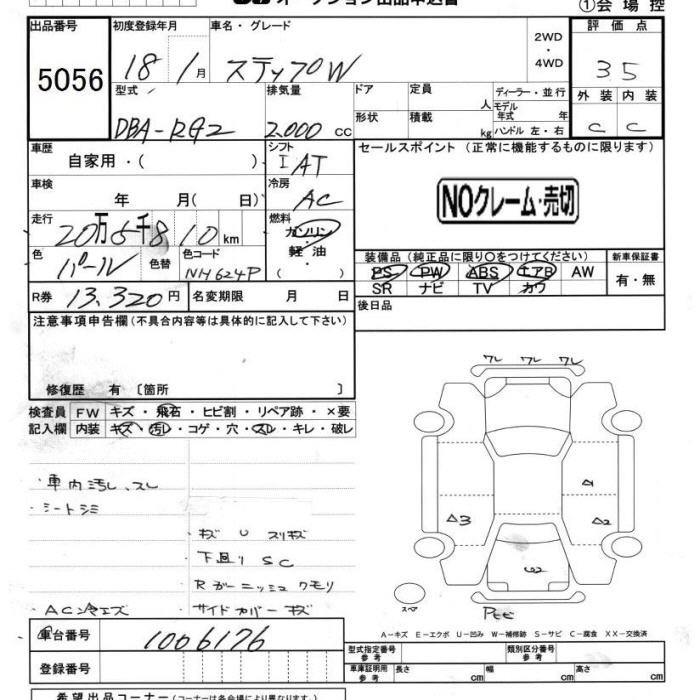 オークション出品申込書
①会場控
出品番号 初度登録年月 車名・グレード 2WD・4WD 評価点
5056 18年1月 ステップW 35
外装 内装
C C
型式 排気量 ドア 形状 定員 人 積載 kg ディーラー・並行 モデル年式 年 ハンドル 左・右
DBA-RG2 2,000cc
車歴 自家用・( ) シフト IAT セールスポイント(正常に機能するものに限ります)
車検 年 月(日) 冷房 AC
NOクレーム・売切
走行 20万5千810km 燃料 ガソリン・軽油 ( )
色 パール 色替 色コード NH624P
装備品(純正品に限り○をつけてください) 新車保証書
PS PW ABS エアB AW 有・無
SR ナビ TV カワ
R券 13,320円 名変期限 月 日 後日品
注意事項申告欄(不具合内容等は具体的に記入して下さい)
修復歴 有〔箇所 〕
ワレ ワレ ワレ
検査員記入欄 FW キズ・飛石・ヒビ割・リペア跡・×要
内装 キズ・汚レ・コゲ・穴・スレ・キレ・破レ
・車内汚レ、スレ
・シートシミ
・キズ U スリキズ
下廻り SC
Rガーニッシュ クモリ
・サイドカバー キズ
A1
A2
A3
スペア
A-キズ E-エクボ U-凹み W-補修跡 S-サビ C-腐食 XX-交換済
車台番号 1006176
登録番号
型式指定番号 参考 類別区分番号 参考
車庫証明用 参考 長さ cm 幅 cm 高さ cm
希望出品コーナー(コーナーは各会場により異なります)